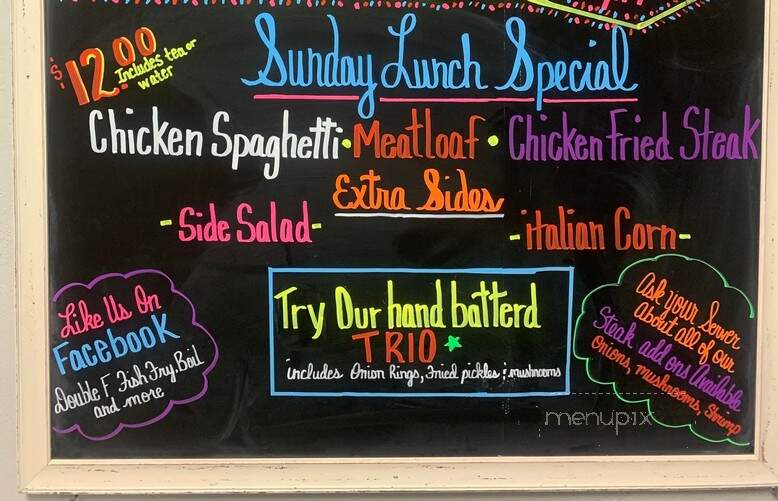 $12.00
Includes tea or
water
Sunday Lunch Special
Chicken Spaghetti • Meatloaf • Chicken Fried Steak
Extra Sides
- Side Salad -
- italian Corn -
Like Us On
Facebook
Double F Fish Fry, Boil
and more
Try Our hand batterd
TRIO
includes Onion Rings, Fried pickles & mushrooms
Ask your Server
About all of our
Steak add ons Available
onions, mushrooms, Shrimp
menupix